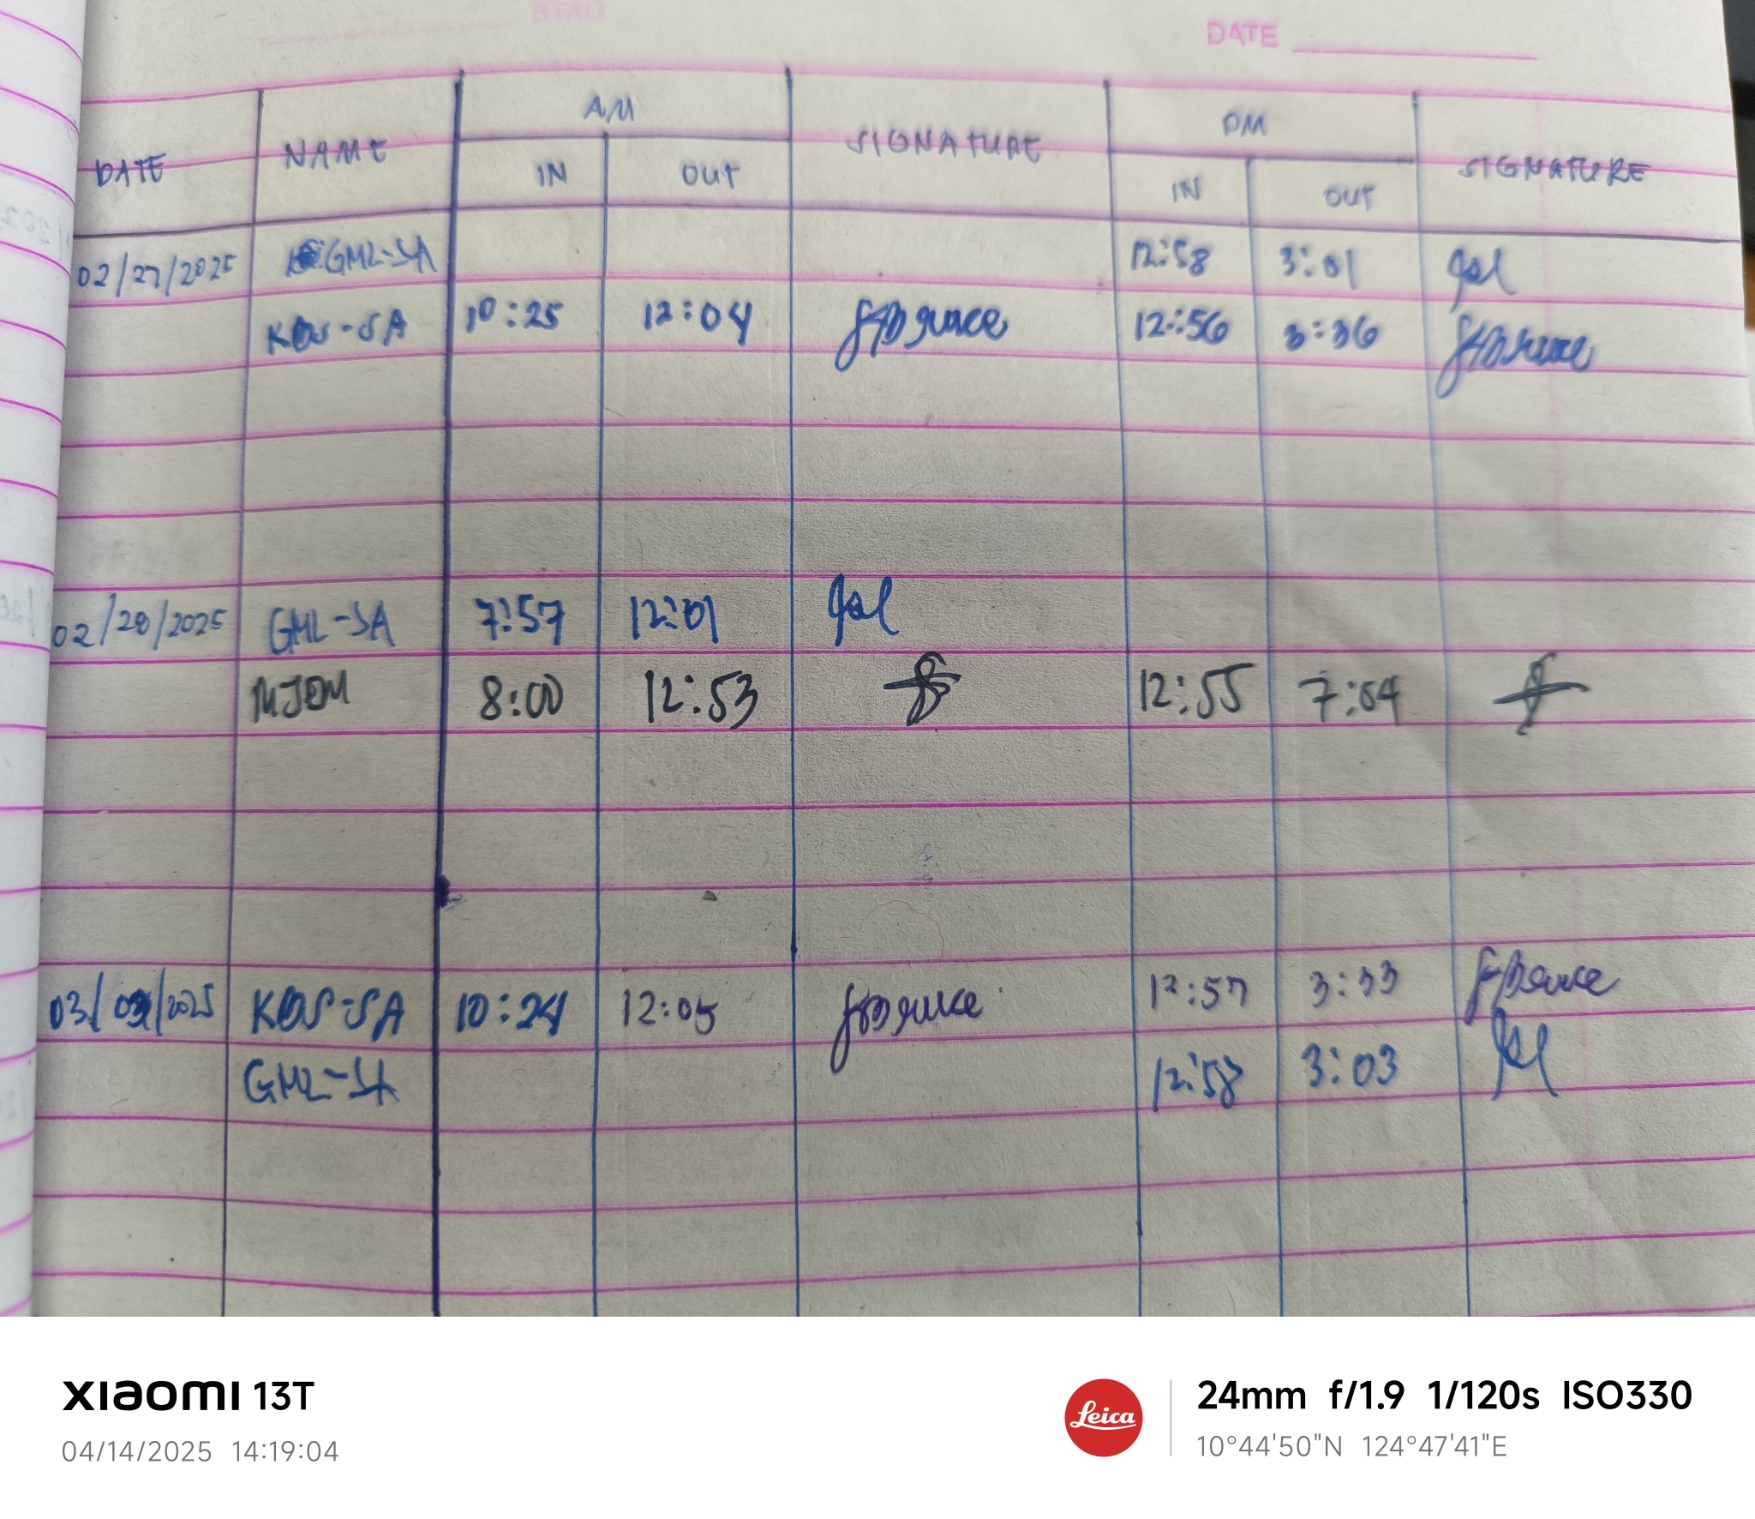 DATE
DATE NAME AM SIGNATURE PM SIGNATURE
IN OUT IN OUT
02/27/2025 GML-SA 12:58 3:01
KDS-SA 10:25 12:04 12:56 3:36
02/28/2025 GML-SA 7:57 12:01
MJDM 8:00 12:53 12:55 7:04
03/03/2025 KDS-SA 10:24 12:05 12:57 3:33
GML-SA 12:58 3:03
XIAOMI 13T
04/14/2025 14:19:04
Leica
24mm f/1.9 1/120s ISO330
10°44'50"N 124°47'41"E